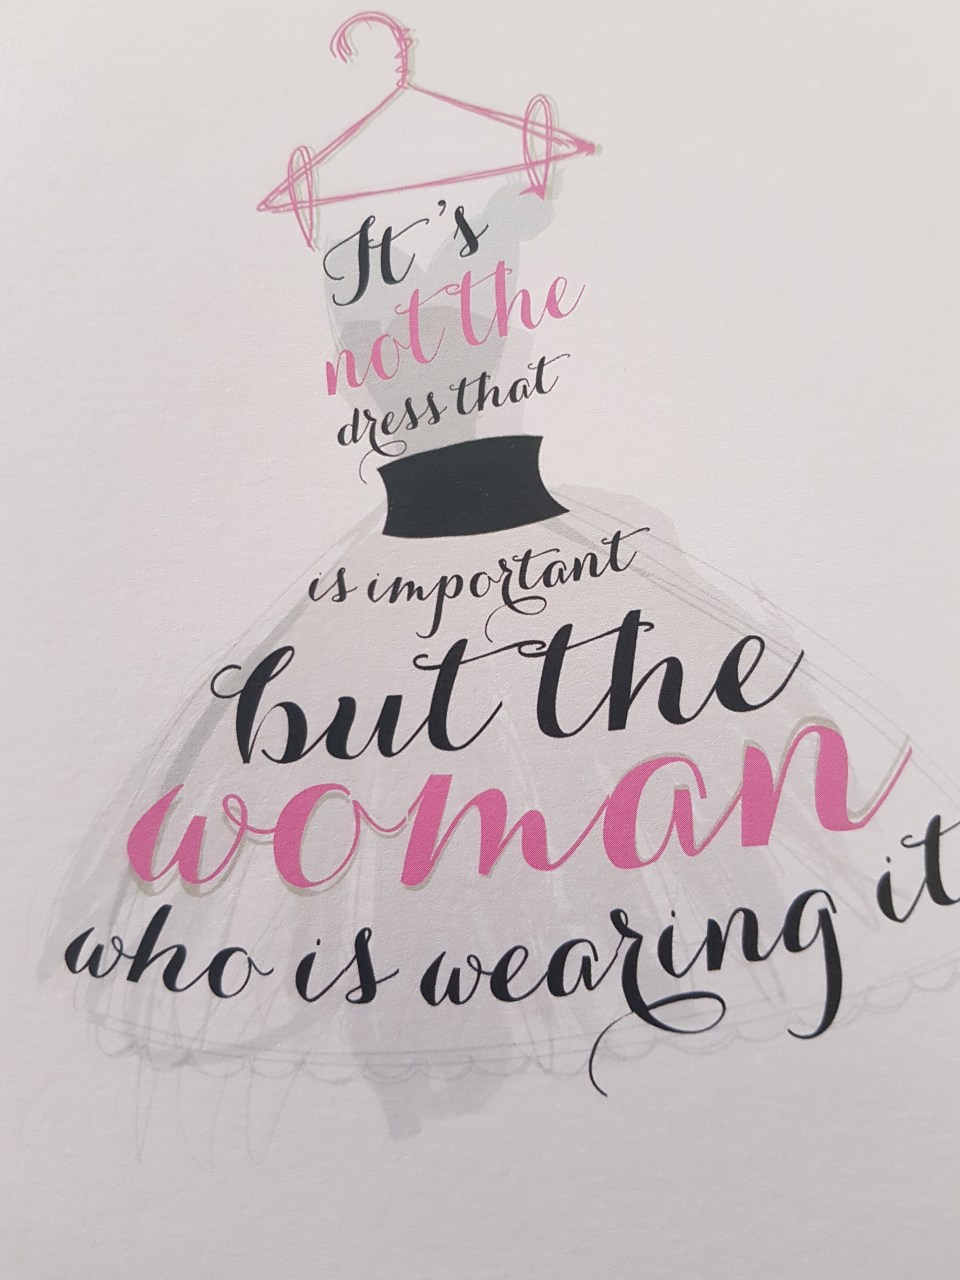 It's
not the
dress that
is important
but the
woman
who is wearing it